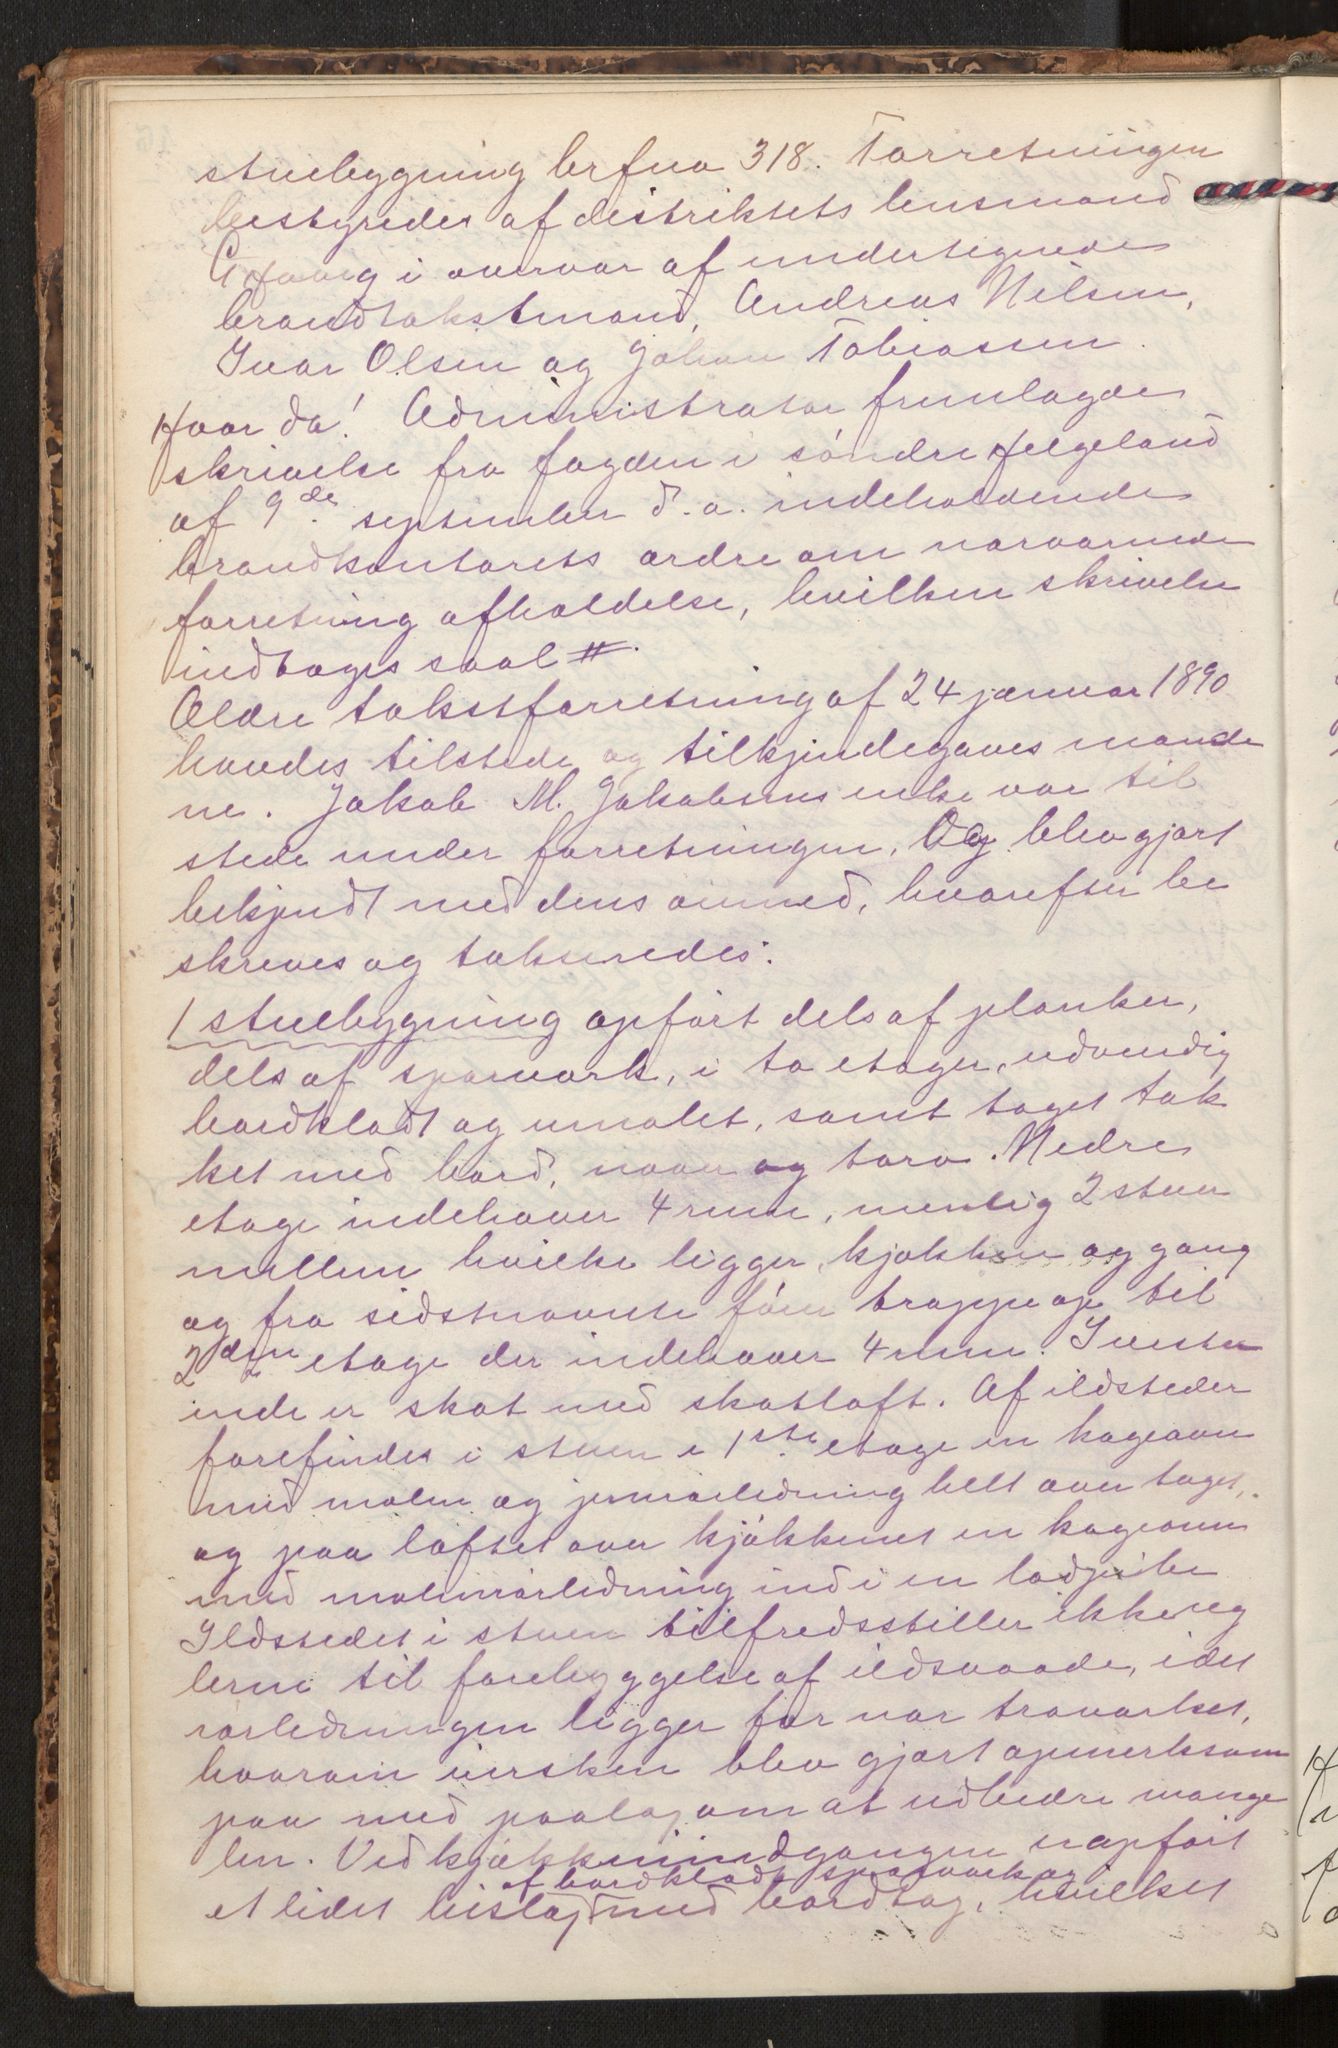 stuebygning brfno 318. Forretningen
bestyredes af distriktets lensmand
i overvær af undertegnede
brandtakstmænd, Andreas Nilsen,
Ivar Olsen og Johan Tobiassen.
Hvor da! Administrator fremlagde
skrivelse fra fogden i søndre Helgeland
af 9de september d.a. indeholdende
brandkontorets ordre om nærværende
forretning afholdelse, hvilken skrivelse
indtages saal #.
Ældre takstforretning af 24 januar 1890
havdes tilstede og tilkjendegaves mænde
ne. Jakob M. Jakobsens enke var til
stede under forretningen. Og blev gjort
bekjendt med dens øiemed, hvorefter be
skreves og taksertedes:
1 stuebygning opført dels af planker,
dels af sperværk, i to etager, udvendig
bordklædt og umalet, samt taget tæk
ket med bord, næver og torv. Nedre
etage indehaver 4 rum, nemlig 2 stuer
mellem hvilke ligger kjøkken og gang
og fra sidstnævnte fører trappe op til
2den etage der indehaver 4 rum. I vestre
ende er skot med skotloft. Af ildsteder
forefindes i stuen i 1ste etage en kogeovn
med malm og jernrørledning helt over taget,
og paa loftet over kjøkkenet en kogeovn
med malmrørledning ind i en lodpibe
Ildstedet i stuen tilfredsstiller ikke reg
lerne til forebyggelse af ildsvaade, idet
rørledningen ligger for nær træværket,
hvorom enken blev gjort opmerksom
paa med paalæg om at udbedre mange
len. Ved kjøkkenindgangen er opført
af bordklædt sperværk og
et lidet bislag med bordtag, hvilket